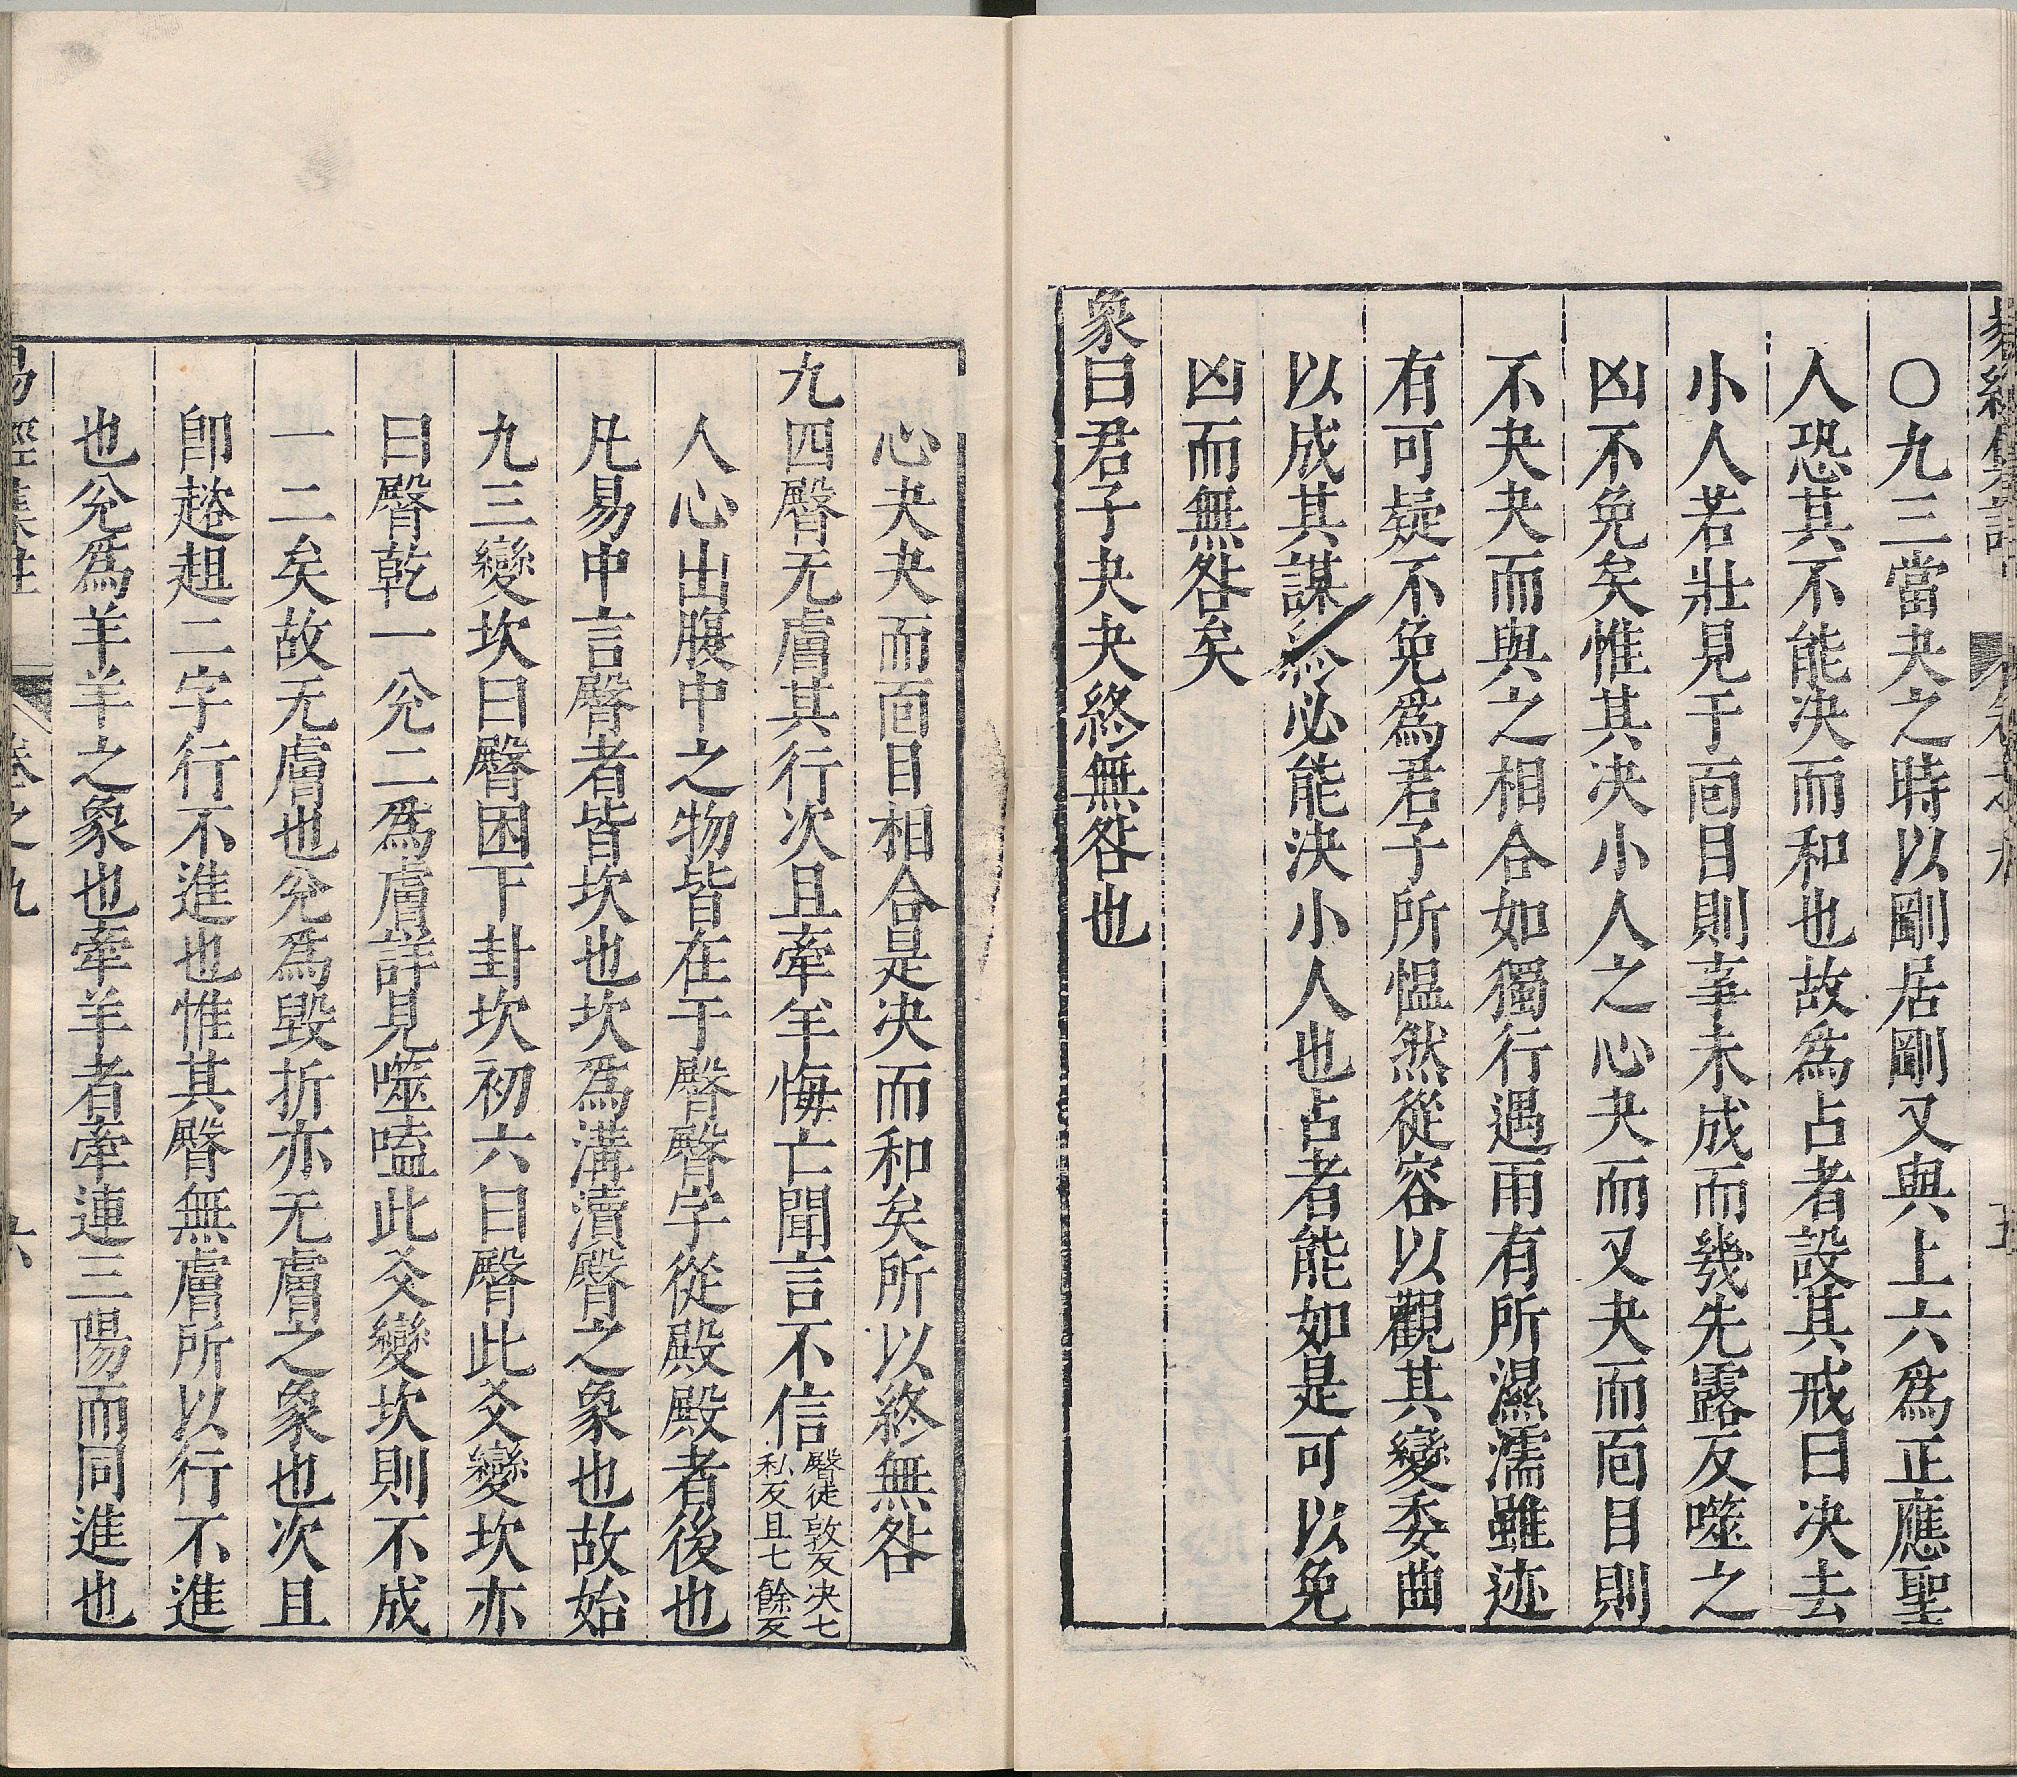 ○九三當夬之時以剛居剛又與上六爲正應聖
人恐其不能决而和也故爲占者設其戒曰决去
小人若壯見于靣目則事未成而幾先露反噬之
凶不免矣惟其决小人之心夬而又夬而靣目則
不夬夬而與之相合如獨行遇雨有所濕濡雖迹
有可疑不免爲君子所愠然從容以觀其變委曲
以成其謀終必能決小人也占者能如是可以免
凶而無咎矣
象曰君子夬夬終無咎也
心夬夬而靣目相合是决而和矣所以終無咎
九四臀无膚其行次且牽羊悔亡聞言不信臀徒敦反次七私反且七餘反
人心出腹中之物皆在于臀臀字從殿殿者後也
凡易中言臀者皆坎也坎爲溝瀆臀之象也故始
九三變坎曰臀困下卦坎初六曰臀此爻變坎亦
曰臀乾一兊二爲膚詳見噬嗑此爻變坎則不成
一二矣故无膚也兊爲毀折亦无膚之象也次且
卽趑趄二字行不進也惟其臀無膚所以行不進
也兊爲羊羊之象也牽羊者牽連三陽而同進也
易經集註 卷之九 六